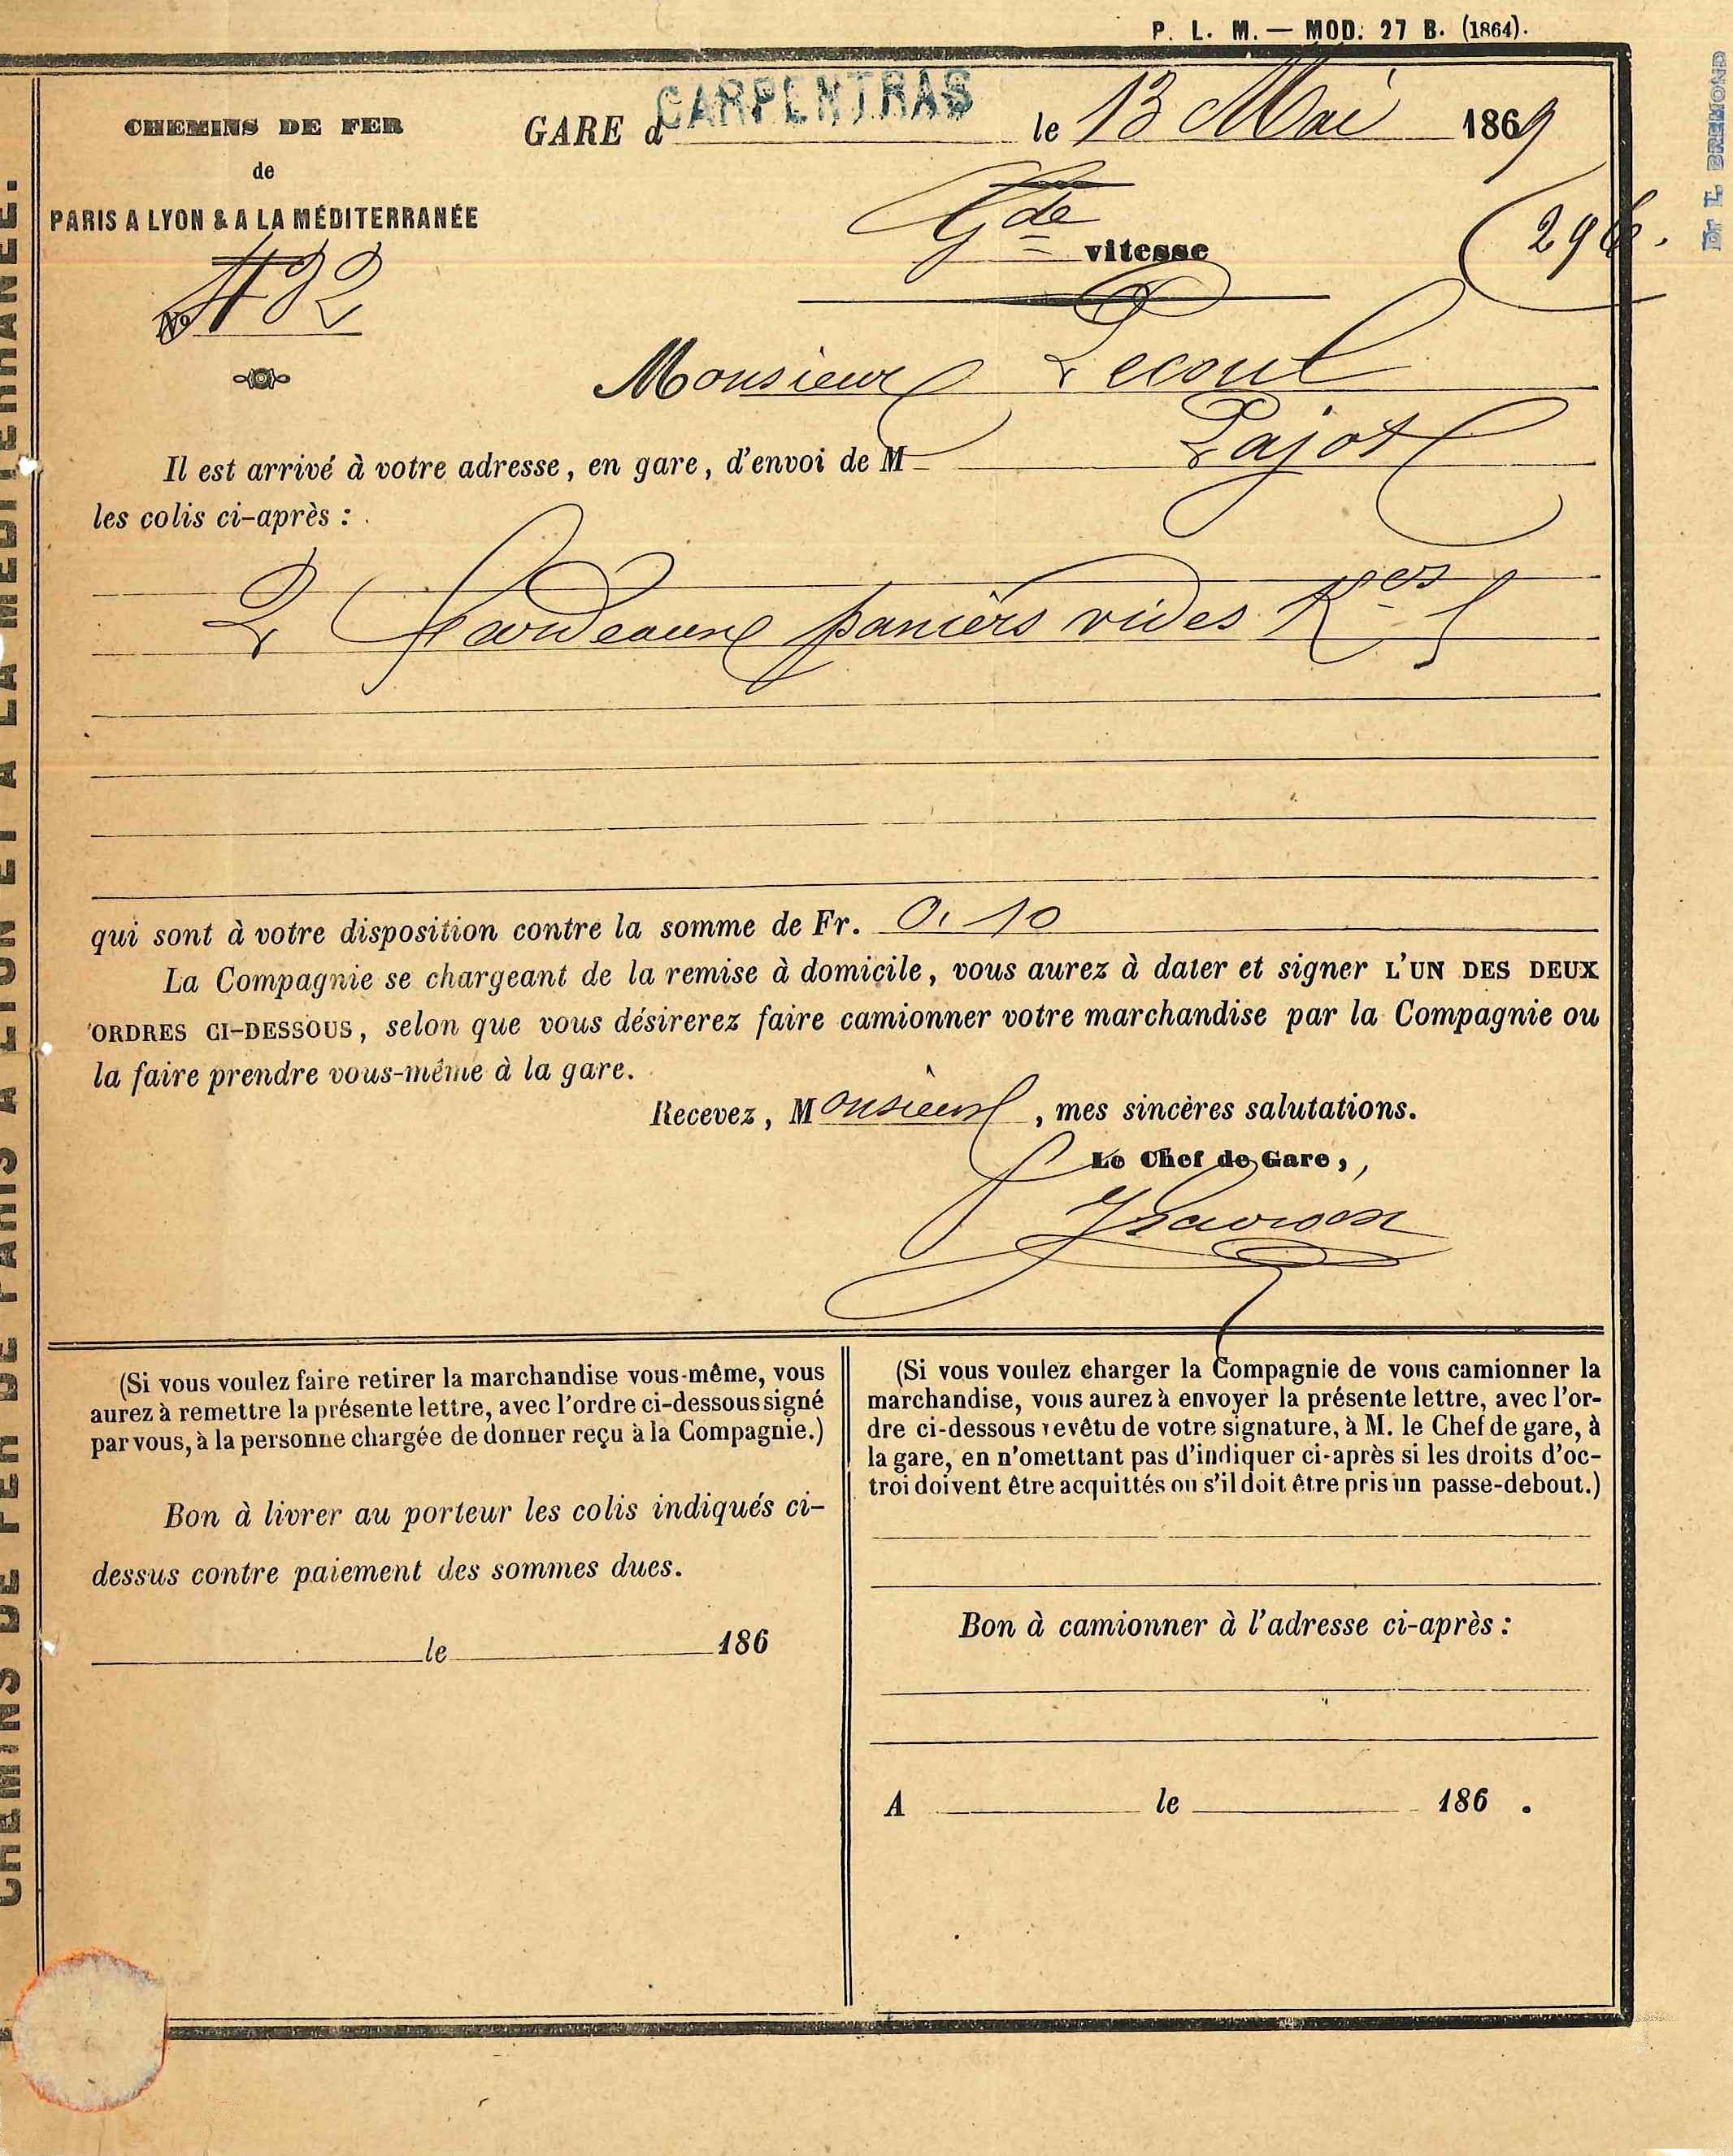 P. L. M. — MOD. 27 B. (1864).
CHEMINS DE FER
de
PARIS A LYON & A LA MÉDITERRANÉE
GARE d CARPENTRAS le 13 Mai 1869
Gde vitesse
Nº
Dr L BREMOND
Monsieur
Il est arrivé à votre adresse, en gare, d'envoi de M Pajot
les colis ci-après :
2 fardeaux paniers vides
qui sont à votre disposition contre la somme de Fr. 0,10
La Compagnie se chargeant de la remise à domicile, vous aurez à dater et signer L'UN DES DEUX
ORDRES CI-DESSOUS, selon que vous désirerez faire camionner votre marchandise par la Compagnie ou
la faire prendre vous-même à la gare.
Recevez, Monsieur, mes sincères salutations.
Le Chef de Gare,
(Si vous voulez faire retirer la marchandise vous-même, vous
aurez à remettre la présente lettre, avec l'ordre ci-dessous signé
par vous, à la personne chargée de donner reçu à la Compagnie.)
Bon à livrer au porteur les colis indiqués ci-
dessus contre paiement des sommes dues.
le 186
(Si vous voulez charger la Compagnie de vous camionner la
marchandise, vous aurez à envoyer la présente lettre, avec l'or-
dre ci-dessous revêtu de votre signature, à M. le Chef de gare, à
la gare, en n'omettant pas d'indiquer ci-après si les droits d'oc-
troi doivent être acquittés ou s'il doit être pris un passe-debout.)
Bon à camionner à l'adresse ci-après :
A le 186 .
CHEMINS DE FER DE PARIS A LYON ET A LA MÉDITERRANÉE.